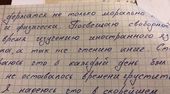 держатся не только морально
и физически. Посвещаю свободное
время изучению иностранного яз
ка, а так же чтению книг. Ст
раюсь что в каждый день был
не оставалось времени грустить
Я надеюсь что в скорейшем